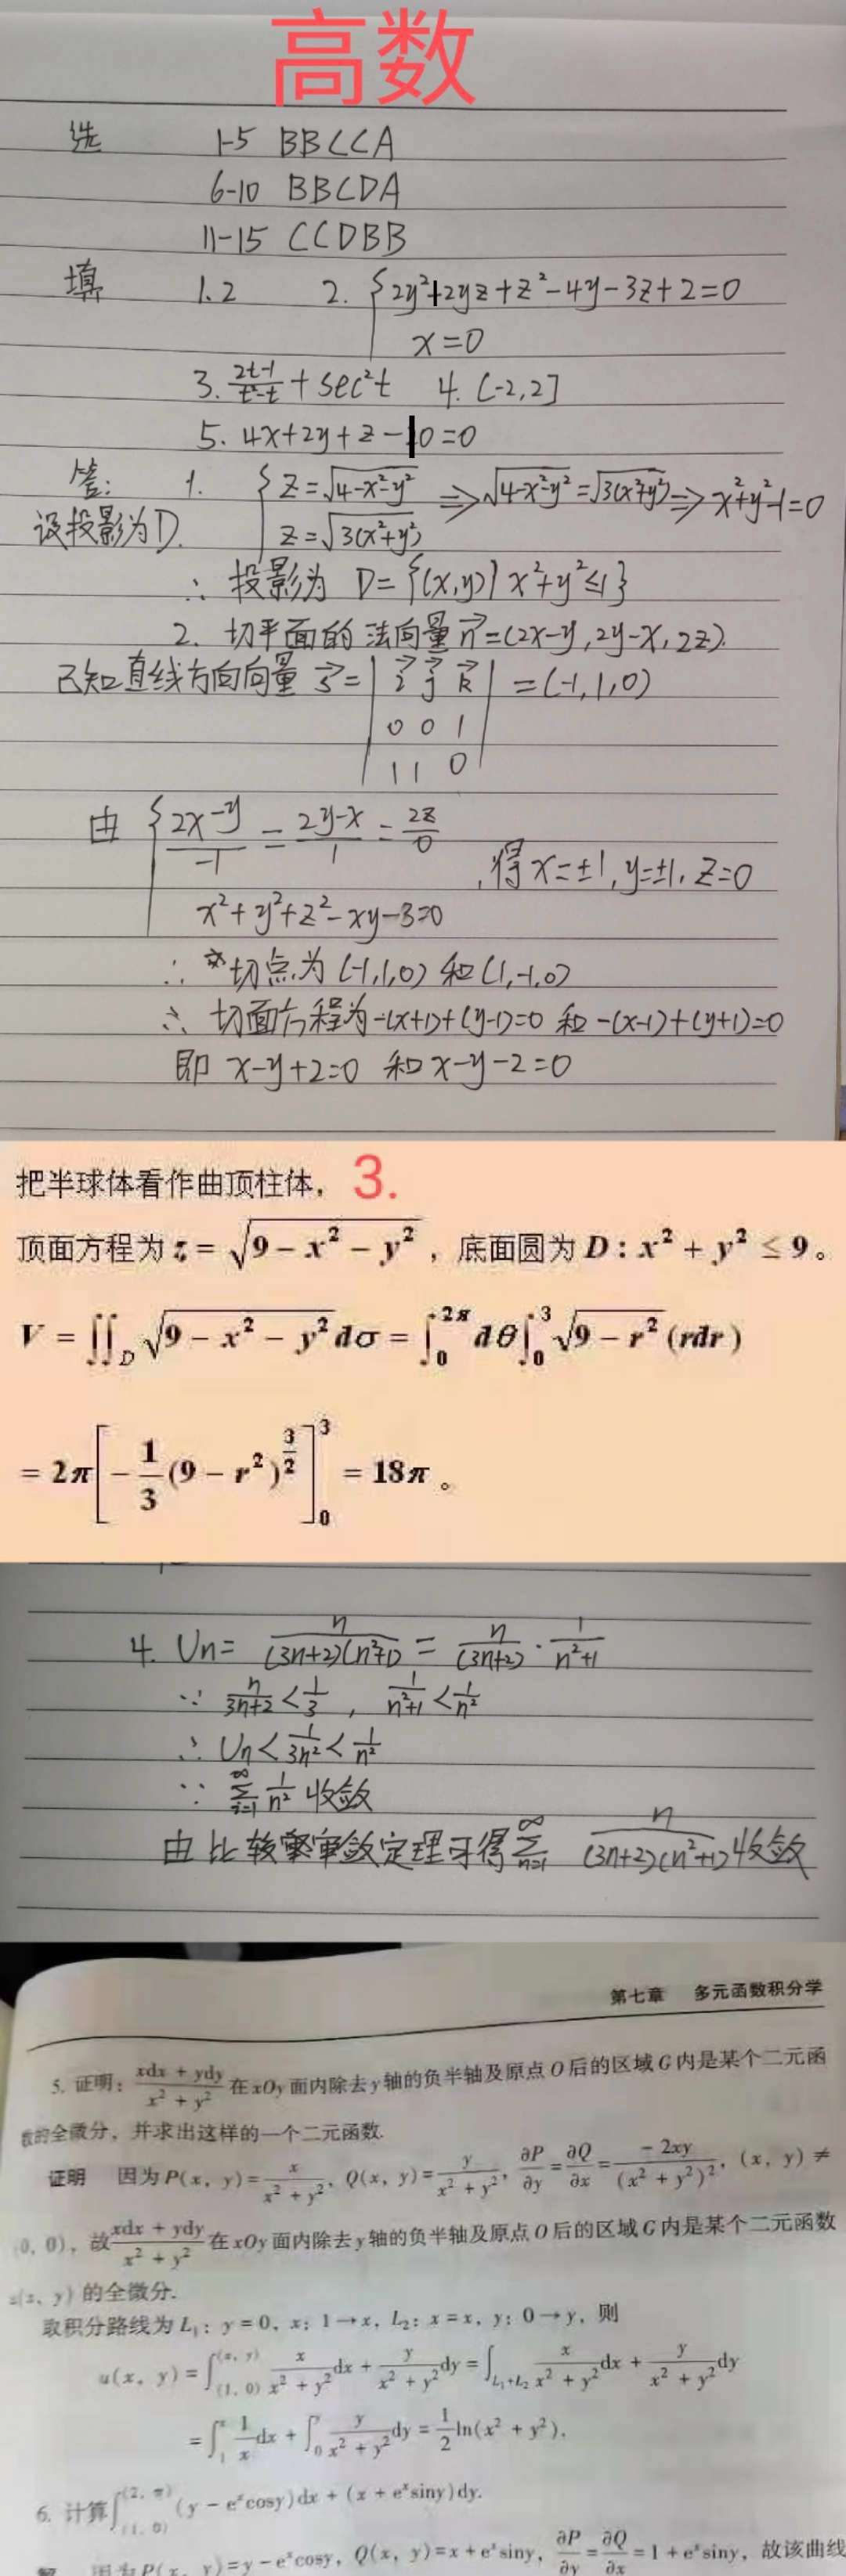 高数
选 1-5 BBCCA
6-10 BBCDA
11-15 CCDBB
填 1. 2 2. { 2y²+2yz+z²-4y-3z+2=0
x=0
3. (2t-1)/(t²-t) + sec²t 4. [-2,2]
5. 4x+2y+z-10=0
答: 1. { z=√(4-x²-y²) ⇒ √(4-x²-y²)=√(3(x²+y²)) ⇒ x²+y²-1=0
设投影为D. z=√(3(x²+y²))
∴ 投影为 D={(x,y)| x²+y²≤1}
2. 切平面的法向量 n⃗=(2x-y, 2y-x, 2z).
已知直线方向向量 s⃗=| i⃗ j⃗ k⃗ | =(-1,1,0)
0 0 1
1 1 0
由 { (2x-y)/-1 = (2y-x)/1 = 2z/0
,得 x=±1, y=±1, z=0
x²+y²+z²-xy-3=0
∴ 切点为 (-1,1,0) 和 (1,-1,0)
∴ 切面方程为 -(x+1)+(y-1)=0 和 -(x-1)+(y+1)=0
即 x-y+2=0 和 x-y-2=0
把半球体看作曲顶柱体， 3.
顶面方程为 z = √(9-x²-y²) ，底面圆为 D : x² + y² ≤ 9 。
V = ∬_D √(9-x²-y²) dσ = ∫₀^{2π} dθ ∫₀³ √(9-r²) (rdr)
= 2π[ -1/3 (9-r²)^{3/2} ]₀³ = 18π 。
4. Un= n/((3n+2)(n²+1)) = n/(3n+2) · 1/(n²+1)
∵ n/(3n+2) < 1/3 , 1/(n²+1) < 1/n²
∴ Un < 1/(3n²) < 1/n²
∵ ∑_{i=1}^∞ 1/n² 收敛
由比较审敛定理可得 ∑_{n=1}^∞ n/((3n+2)(n²+1)) 收敛
第七章 多元函数积分学
5. 证明：(xdx + ydy)/(x² + y²) 在 xOy 面内除去 y 轴的负半轴及原点 O 后的区域 G 内是某个二元函
数的全微分，并求出这样的一个二元函数.
证明 因为 P(x, y)= x/(x² + y²)，Q(x, y)= y/(x² + y²)，∂P/∂y = ∂Q/∂x = -2xy/(x² + y²)²，(x, y) ≠
(0, 0)，故 (xdx + ydy)/(x² + y²) 在 xOy 面内除去 y 轴的负半轴及原点 O 后的区域 G 内是某个二元函数
(x, y) 的全微分.
取积分路线为 L₁: y = 0, x: 1→x, L₂: x = x, y: 0→y, 则
u(x, y) = ∫_{(1, 0)}^{(x, y)} x/(x² + y²) dx + y/(x² + y²) dy = ∫_{L₁+L₂} x/(x² + y²) dx + y/(x² + y²) dy
= ∫₁^x 1/x dx + ∫₀^y y/(x² + y²) dy = 1/2 ln(x² + y²).
6. 计算 ∫_{(1, 0)}^{(2, π)} (y - eˣcosy)dx + (x + eˣsiny)dy.
解 因为 P(x, y)= y - eˣcosy, Q(x, y)= x + eˣsiny, ∂P/∂y = ∂Q/∂x = 1 + eˣsiny, 故该曲线